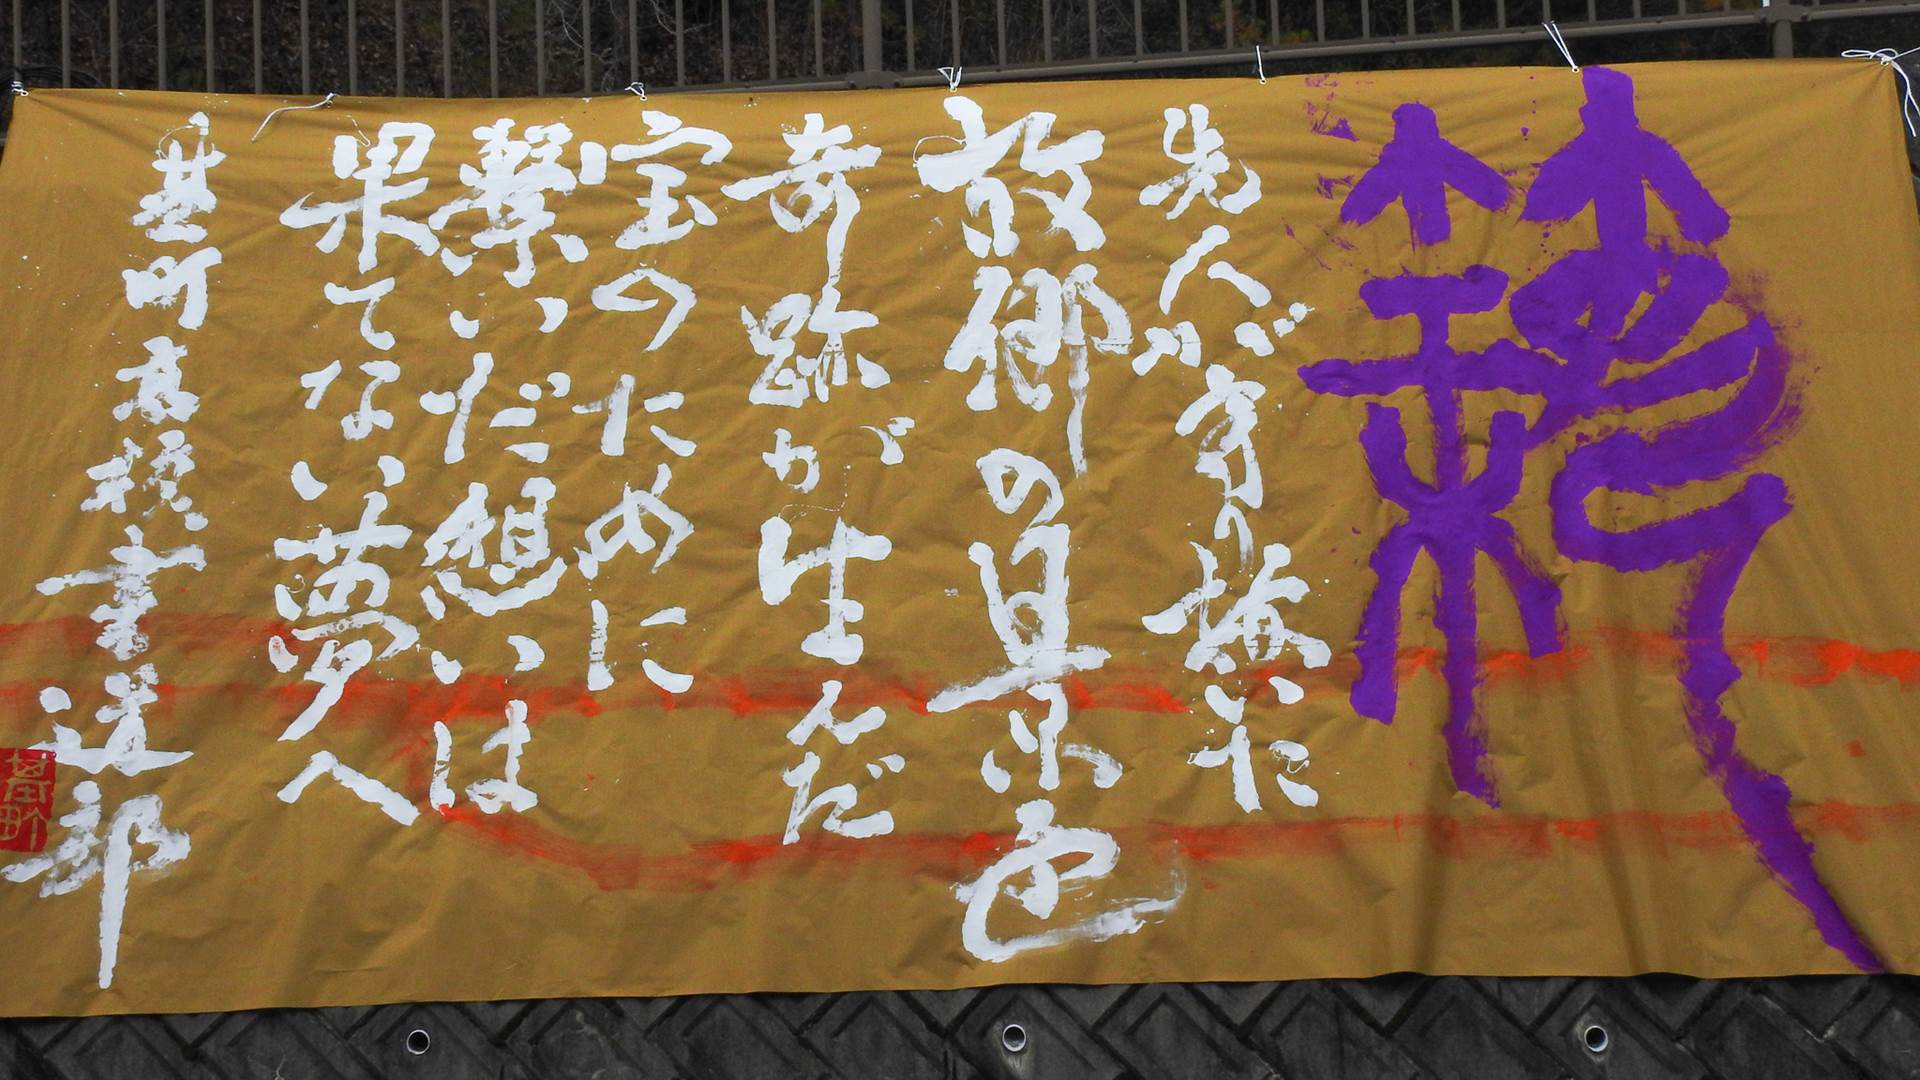 先人が守りいた
故郷の景色
奇跡が生んだ
宝のために
繋いだ想いは
果てない夢へ
基町高校書道部
基町